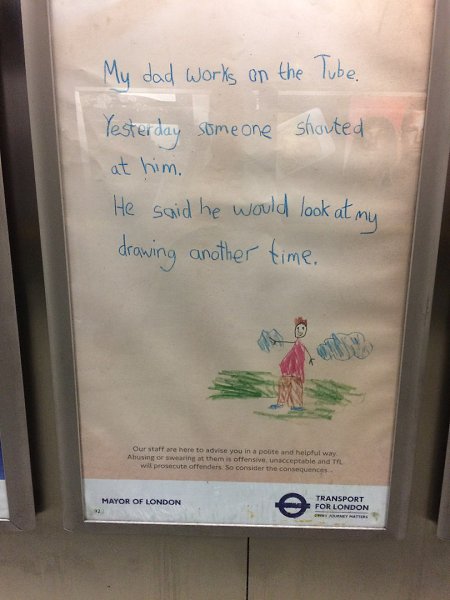 My dad works on the Tube.
Yesterday someone shouted
at him.
He said he would look at my
drawing another time.
Our staff are here to advise you in a polite and helpful way.
Abusing or swearing at them is offensive, unacceptable and TfL
will prosecute offenders. So consider the consequences.
MAYOR OF LONDON
TRANSPORT
FOR LONDON
EVERY JOURNEY MATTERS